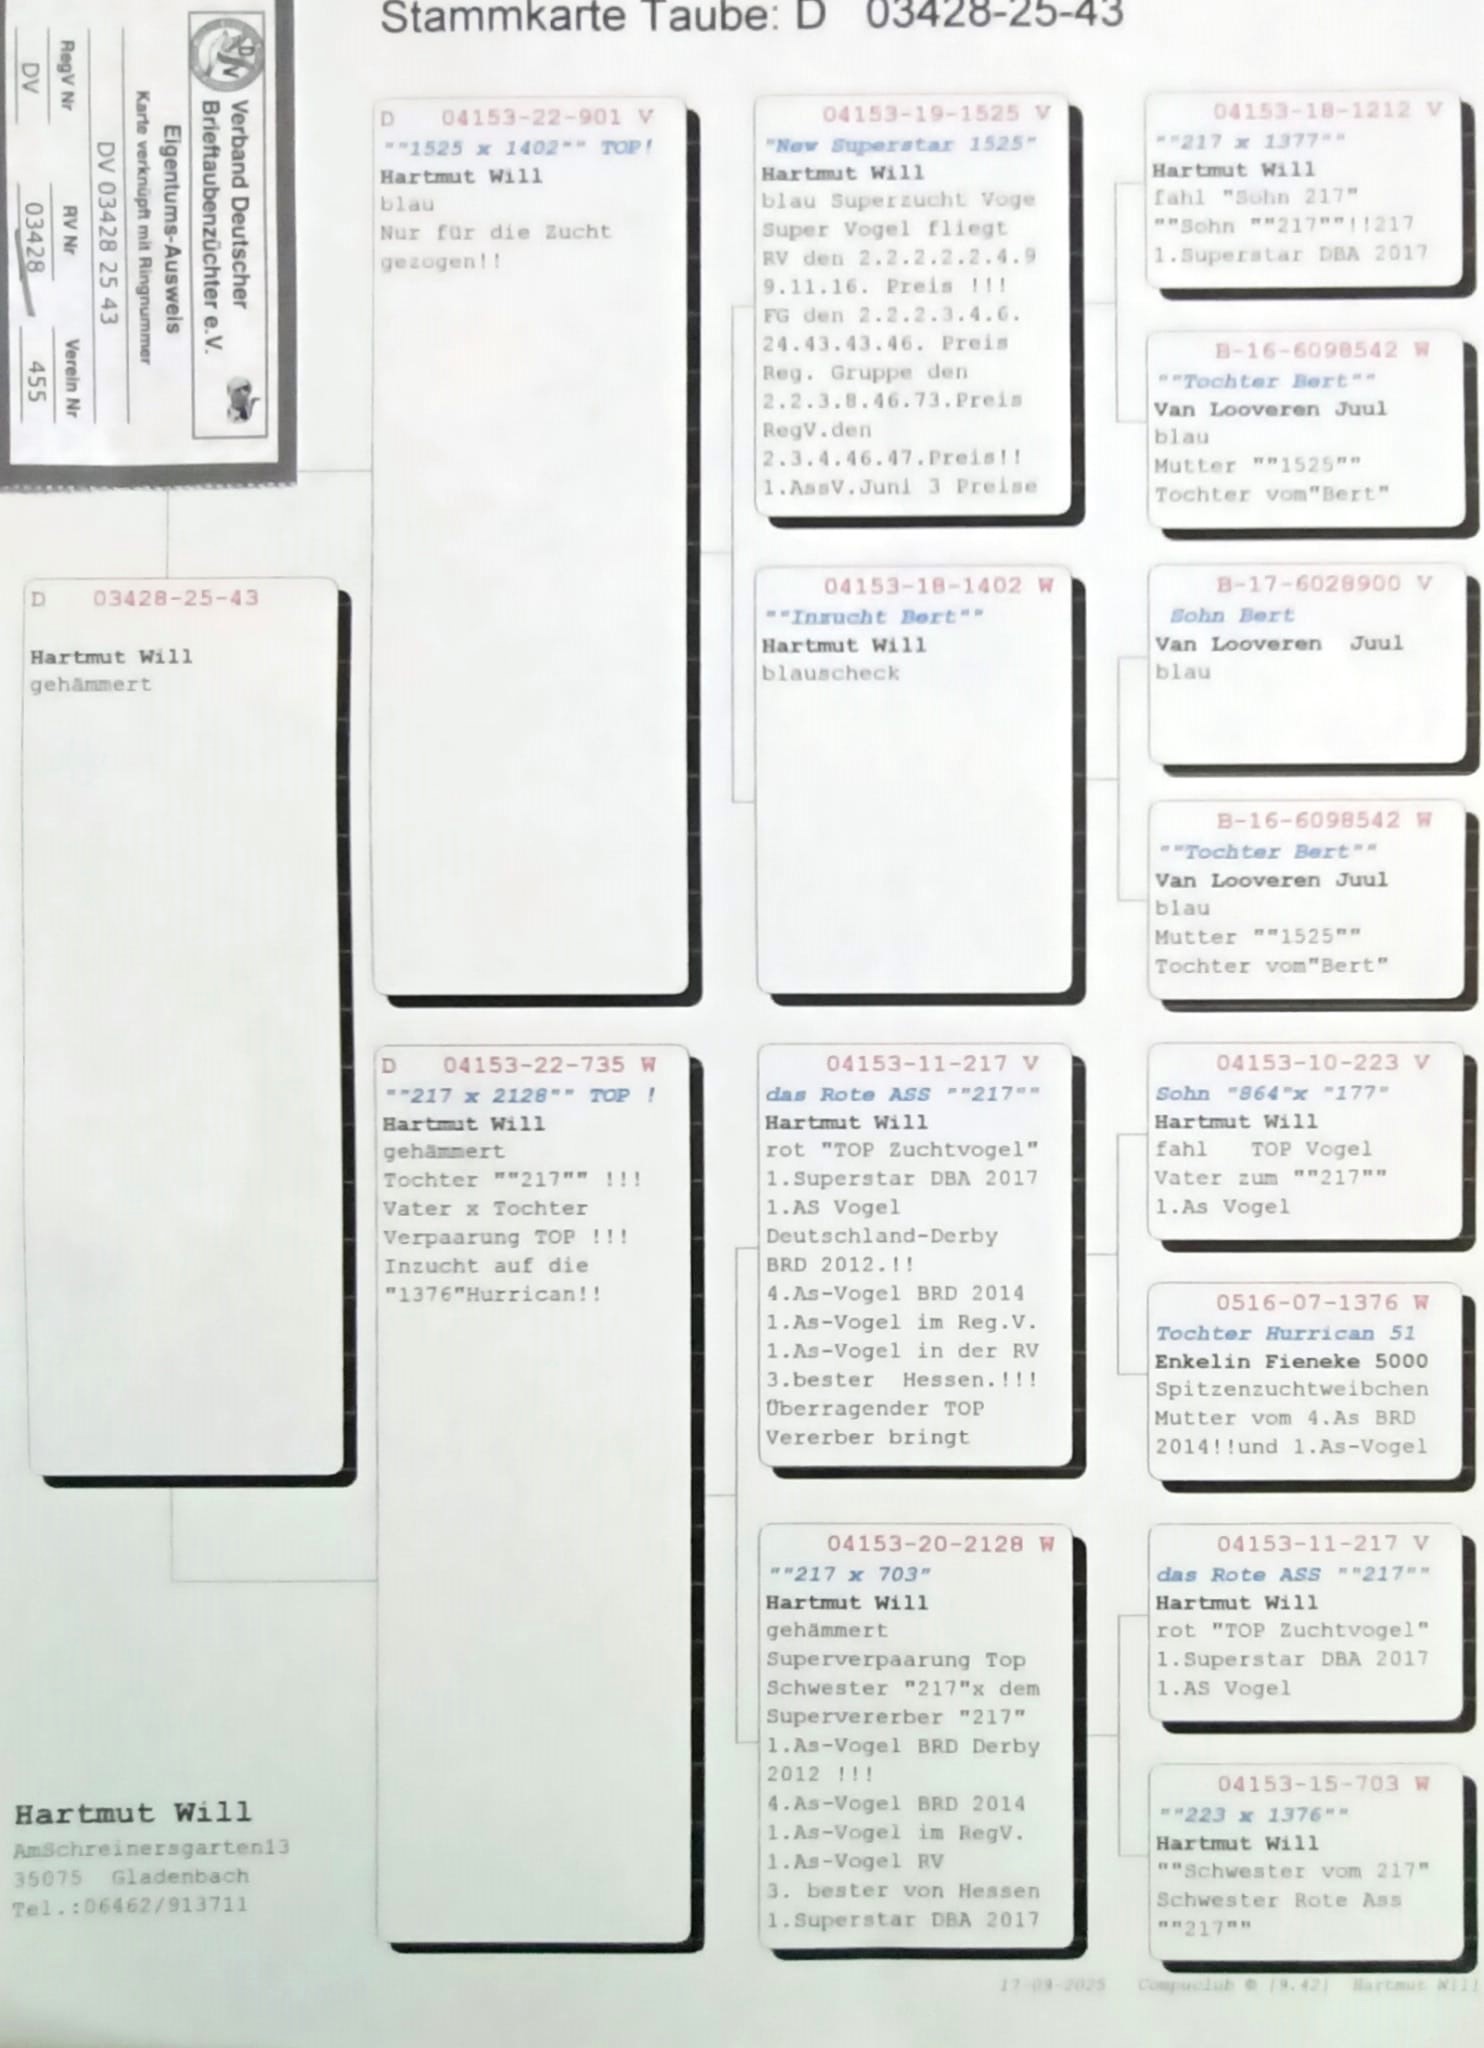 Stammkarte Taube: D 03428-25-43
Verband Deutscher
Brieftaubenzüchter e.V.
Eigentums-Ausweis
Karte verknüpft mit Ringnummer
DV 03428 25 43
RegV Nr RV Nr Verein Nr
DV 03428 455
D 03428-25-43
Hartmut Will
gehämmert
D 04153-22-901 V
""1525 x 1402"" TOP!
Hartmut Will
blau
Nur für die Zucht
gezogen!!
D 04153-22-735 W
""217 x 2128"" TOP !
Hartmut Will
gehämmert
Tochter ""217"" !!!
Vater x Tochter
Verpaarung TOP !!!
Inzucht auf die
"1376"Hurrican!!
04153-19-1525 V
"New Superstar 1525"
Hartmut Will
blau Superzucht Voge
Super Vogel fliegt
RV den 2.2.2.2.2.4.9
9.11.16. Preis !!!
FG den 2.2.2.3.4.6.
24.43.43.46. Preis
Reg. Gruppe den
2.2.3.8.46.73.Preis
RegV.den
2.3.4.46.47.Preis!!
1.AssV.Juni 3 Preise
04153-18-1402 W
""Inzucht Bert""
Hartmut Will
blauscheck
04153-11-217 V
das Rote ASS ""217""
Hartmut Will
rot "TOP Zuchtvogel"
1.Superstar DBA 2017
1.AS Vogel
Deutschland-Derby
BRD 2012.!!
4.As-Vogel BRD 2014
1.As-Vogel im Reg.V.
1.As-Vogel in der RV
3.bester Hessen.!!!
Überragender TOP
Vererber bringt
04153-20-2128 W
""217 x 703"
Hartmut Will
gehämmert
Superverpaarung Top
Schwester "217"x dem
Supervererber "217"
1.As-Vogel BRD Derby
2012 !!!
4.As-Vogel BRD 2014
1.As-Vogel im RegV.
1.As-Vogel RV
3. bester von Hessen
1.Superstar DBA 2017
04153-18-1212 V
""217 x 1377""
Hartmut Will
fahl "Sohn 217"
""Sohn ""217""!!217
1.Superstar DBA 2017
B-16-6098542 W
""Tochter Bert""
Van Looveren Juul
blau
Mutter ""1525""
Tochter vom"Bert"
B-17-6028900 V
Sohn Bert
Van Looveren Juul
blau
B-16-6098542 W
""Tochter Bert""
Van Looveren Juul
blau
Mutter ""1525""
Tochter vom"Bert"
04153-10-223 V
Sohn "864"x "177"
Hartmut Will
fahl TOP Vogel
Vater zum ""217""
1.As Vogel
0516-07-1376 W
Tochter Hurrican 51
Enkelin Fieneke 5000
Spitzenzuchtweibchen
Mutter vom 4.As BRD
2014!!und 1.As-Vogel
04153-11-217 V
das Rote ASS ""217""
Hartmut Will
rot "TOP Zuchtvogel"
1.Superstar DBA 2017
1.AS Vogel
04153-15-703 W
""223 x 1376""
Hartmut Will
""Schwester vom 217"
Schwester Rote Ass
""217""
Hartmut Will
AmSchreinersgarten13
35075 Gladenbach
Tel.:06462/913711
17-09-2025 Compuclub © [9.42] Hartmut Will